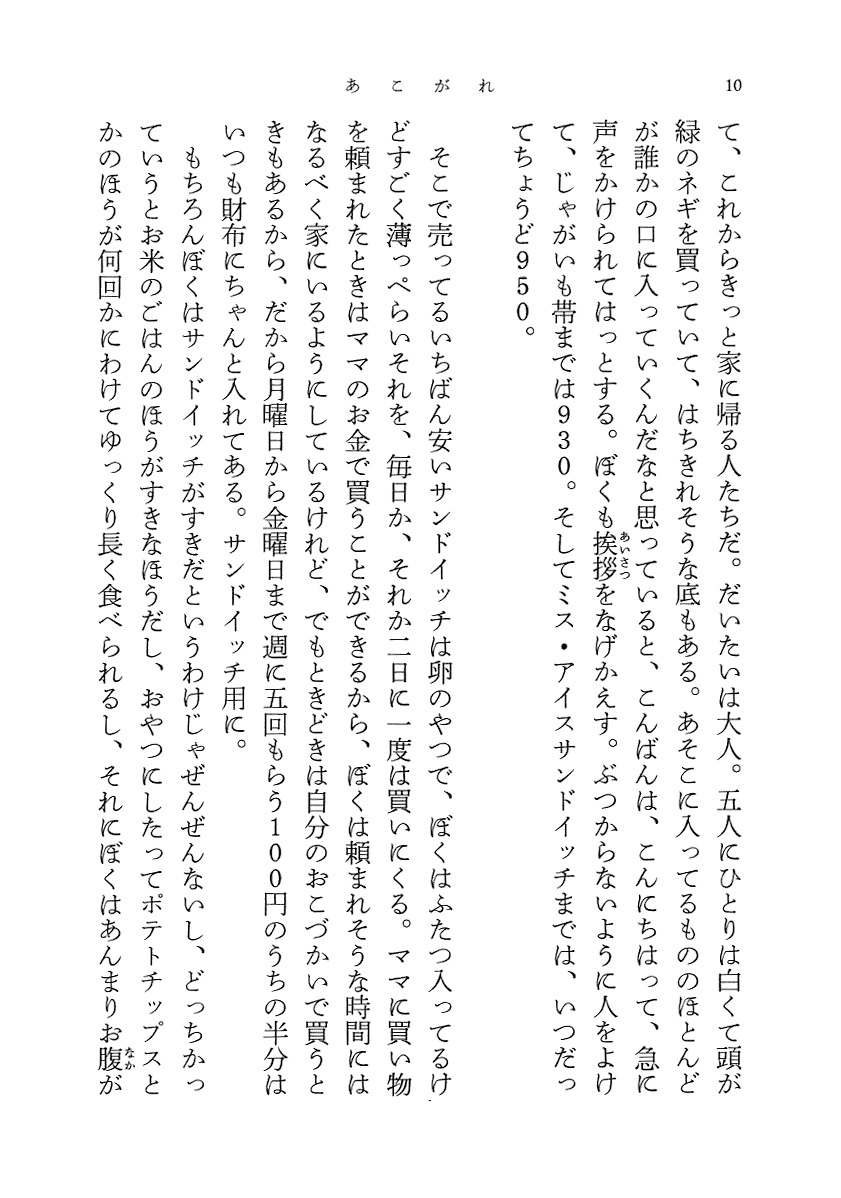 あこがれ
10
て、これからきっと家に帰る人たちだ。だいたいは大人。五人にひとりは白くて頭が
緑のネギを買っていて、はちきれそうな底もある。あそこに入ってるもののほとんど
が誰かの口に入っていくんだなと思っていると、こんばんは、こんにちはって、急に
声をかけられてはっとする。ぼくも挨拶をなげかえす。ぶつからないように人をよけ
あいさつ
て、じゃがいも帯までは930。そしてミス・アイスサンドイッチまでは、いつだっ
てちょうど950。
そこで売ってるいちばん安いサンドイッチは卵のやつで、ぼくはふたつ入ってるけ
どすごく薄っぺらいそれを、毎日か、それか二日に一度は買いにくる。ママに買い物
を頼まれたときはママのお金で買うことができるから、ぼくは頼まれそうな時間には
なるべく家にいるようにしているけれど、でもときどきは自分のおこづかいで買うと
きもあるから、だから月曜日から金曜日まで週に五回もらう100円のうちの半分は
いつも財布にちゃんと入れてある。サンドイッチ用に。
もちろんぼくはサンドイッチがすきだというわけじゃぜんぜんないし、どっちかっ
ていうとお米のごはんのほうがすきなほうだし、おやつにしたってポテトチップスと
かのほうが何回かにわけてゆっくり長く食べられるし、それにぼくはあんまりお腹が
なか